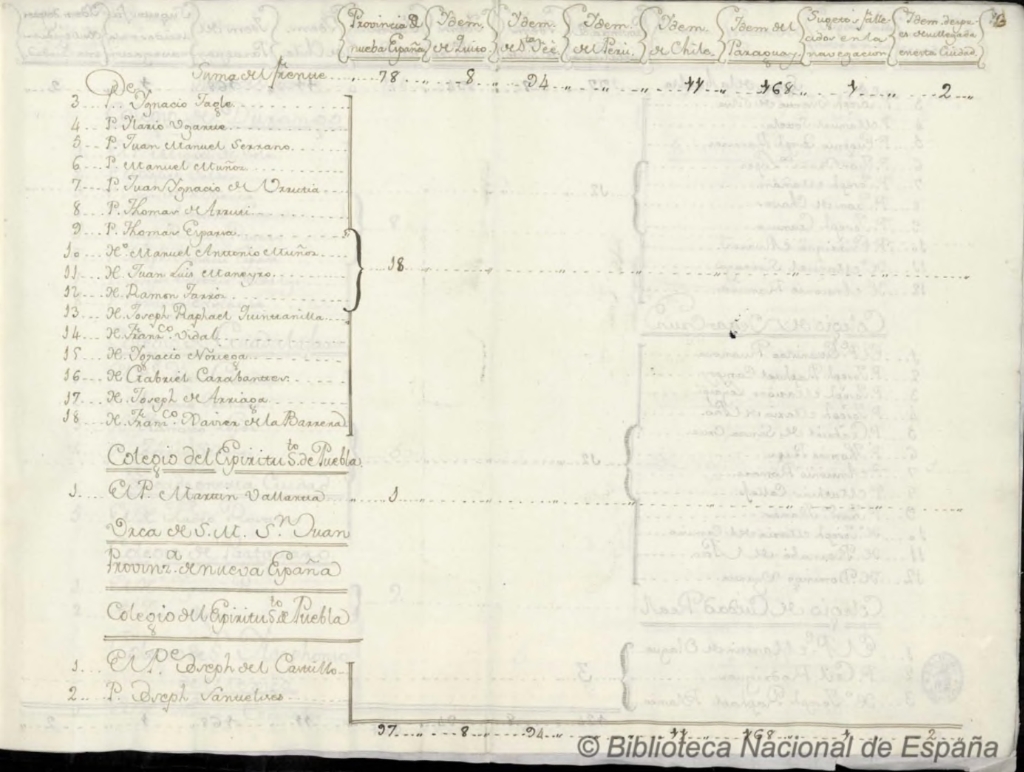 Provincia de nueba España
Idem. de Quito.
Idem. de Sta. Fee
Idem. de Perú.
Idem. de Chile.
Idem del Paraguay
Sugetos falle cidos en la navegacion
Idem. despues de su llegada en esta Ciudad
Suma del frente .. 78 .. 8 .. 94 .. 11 .. 168 .. 1 .. 2
3 ... Ygnacio Tagle
4 ... P. Ylario Ugarte
5 ... P. Juan Manuel Serrano
6 ... P. Manuel Muñoz
7 ... P. Juan Ygnacio de Urrutia
8 ... P. Thomas de Arruti
9 ... P. Thomas Esparza
10 ... H.o Manuel Antonio Muñoz
11 ... H. Juan Luis Maneyro .. 18
12 ... H. Ramon
13 ... H. Joseph Raphael Quintanilla
14 ... H. Franc.co Vidal
15 ... H. Ygnacio Noriega
16 ... H. Gabriel Carabantes
17 ... H. Joseph de Arriaga
18 ... H. Franc.co Xavier de la Barrera
Colegio del Espiritu S.to de Puebla
1 ... El P. Martin Vallarta .. 1
Urca de S. M. S.n Juan
Provinz.a de nueva España
Colegio del Espiritu S.to de Puebla
1 ... El P.e Joseph del Castillo
2 ... P. Joseph
97 .. 8 .. 94 .. 11 .. 168 .. 1 .. 2
© Biblioteca Nacional de España